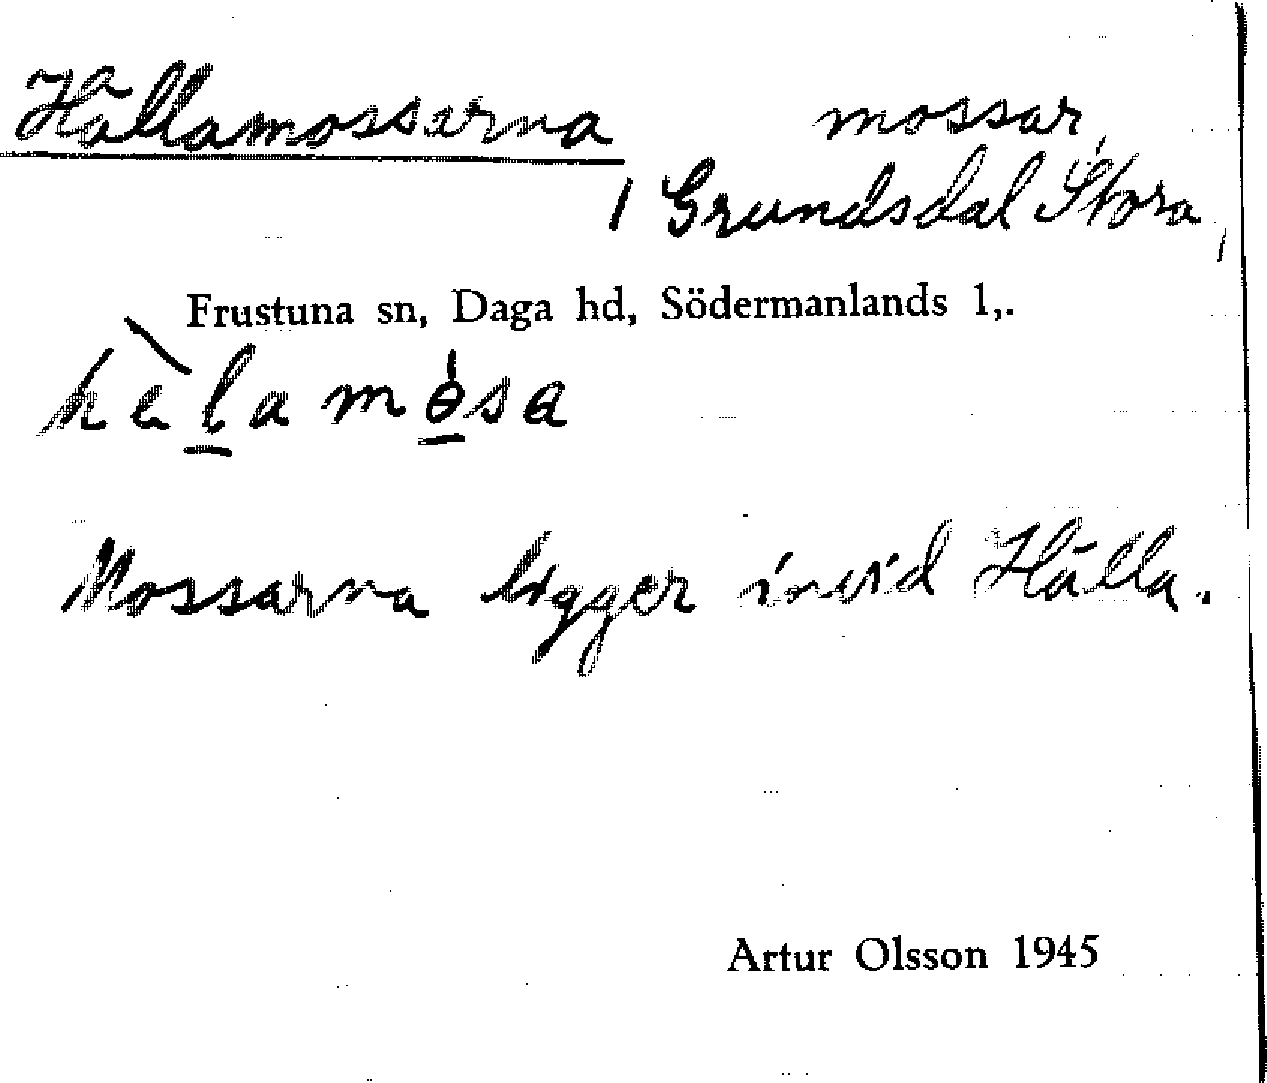 Hållamossarna mossar,
1 Grundsdal Stora,
Frustuna sn, Daga hd, Södermanlands l,.
Mossarna ligger invid Hålla.
Artur Olsson 1945